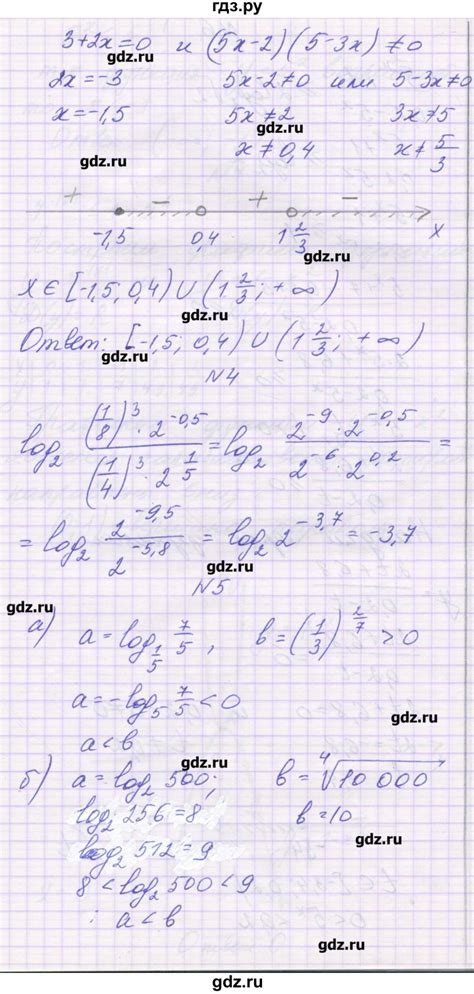 гдз.ру
3+2x=0 и (5x-2)(5-3x)≠0
2x=-3 5x-2≠0 или 5-3x≠0
gdz.ru
x=-1,5 5x≠2 3x≠5
gdz.ru
x≠0,4 x≠5/3
gdz.ru
+ - + -
-1,5 0,4 1 2/3 x
gdz.ru
x∈[-1,5; 0,4)∪(1 2/3; +∞)
Ответ: [-1,5; 0,4)∪(1 2/3; +∞)
gdz.ru
N4
log₂ ((1/8)³·2^(-0,5))/((1/4)³·2^(1/5)) = log₂ (2^(-9)·2^(-0,5))/(2^(-6)·2^(0,2)) =
gdz.ru
= log₂ 2^(-9,5)/2^(-5,8) = log₂ 2^(-3,7) = -3,7
gdz.ru
N5
gdz.ru
а) a=log_(1/5) 7/5, b=(1/3)^(2/7)>0
gdz.ru
a=-log₅ 7/5<0
a<b
gdz.ru
б) a=log₂ 500; b=⁴√10 000
gdz.ru
log₂ 256=8 b=10
gdz.ru
log₂ 512=9
8<log₂ 500<9
∶ a<b
gdz.ru
gdz.ru
gdz.ru